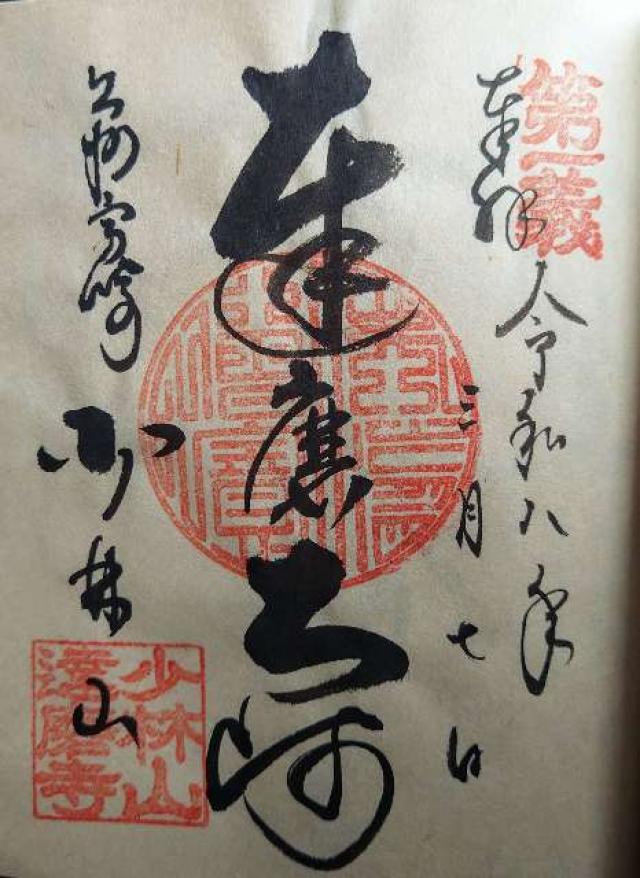 第一義
奉拝 令和八年
三月七日
達磨大師
上州高崎 少林山
少林山
達磨寺